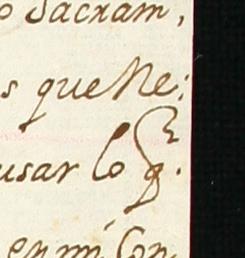 o Sacram,
s que Ne;
usar lo q.
en mi Con